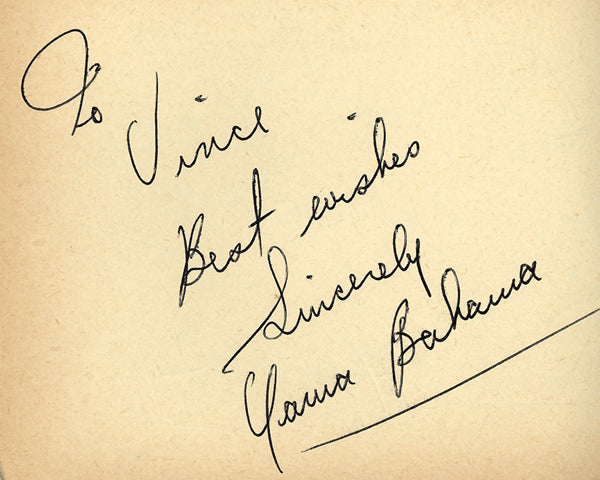 To Vince
Best wishes
Sincerely
Yama Bahama